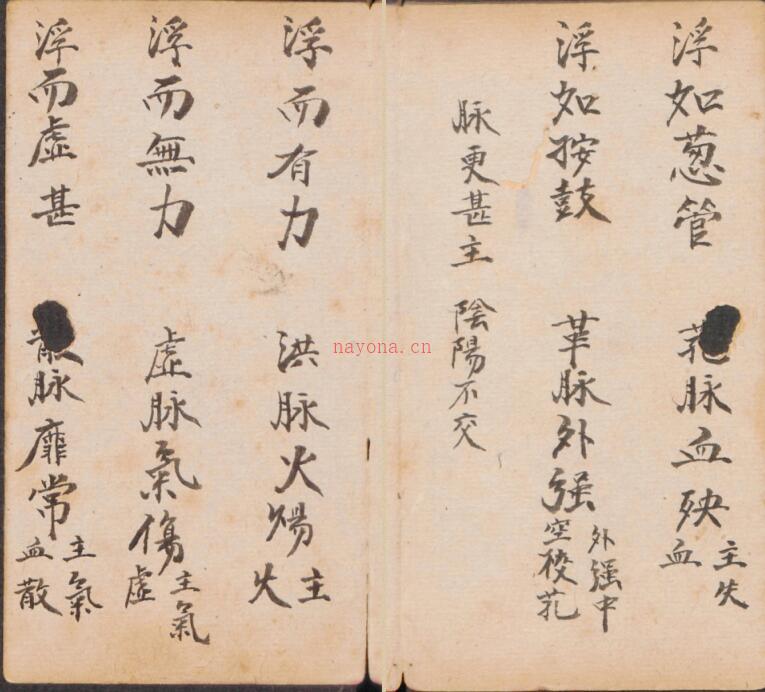 浮如葱管 芤脉血殃 主失血
浮如按鼓 革脉外强 外强中空校芤
脉更甚主 陰陽不交
浮而有力 洪脉火煬 主火
浮而無力 虚脉氣傷 主氣虚
浮而虚甚 散脉靡常 主氣血散
nayona.cn